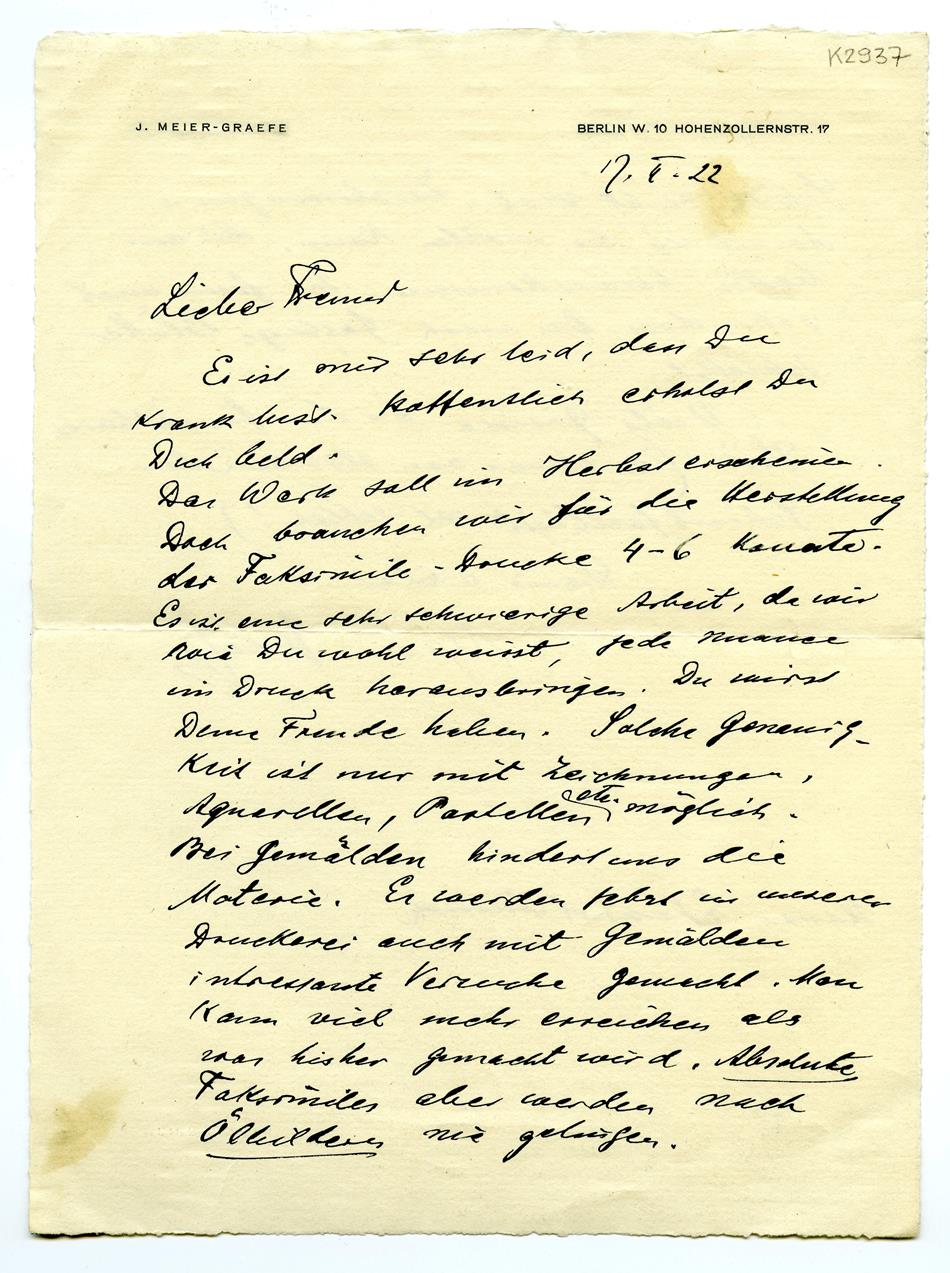 K2937
J. MEIER-GRAEFE
BERLIN W. 10 HOHENZOLLERNSTR. 17
17. II. 22
Lieber Freund
Es ist mir sehr leid, dass Du
krank bist. Hoffentlich erholst Du
Dich bald.
Das Werk soll im Herbst erscheinen.
Doch brauchen wir für die Herstellung
der Faksimile-Drucke 4-6 Monate.
Es ist eine sehr schwierige Arbeit, da wir
wie Du wohl weisst, jede nuance
im Druck herausbringen. Du wirst
Deine Freude haben. Solche Genauig-
keit ist nur mit Zeichnungen,
Aquarellen, Pastellen etc. möglich.
Bei Gemälden hindert uns die
Materie. Es werden jetzt in unserer
Druckerei auch mit Gemälden
intressante Versuche gemacht. Man
kann viel mehr erreichen als
was bisher gemacht wird. Absolute
Faksimiles aber werden nach
Ölbildern nie gelingen.